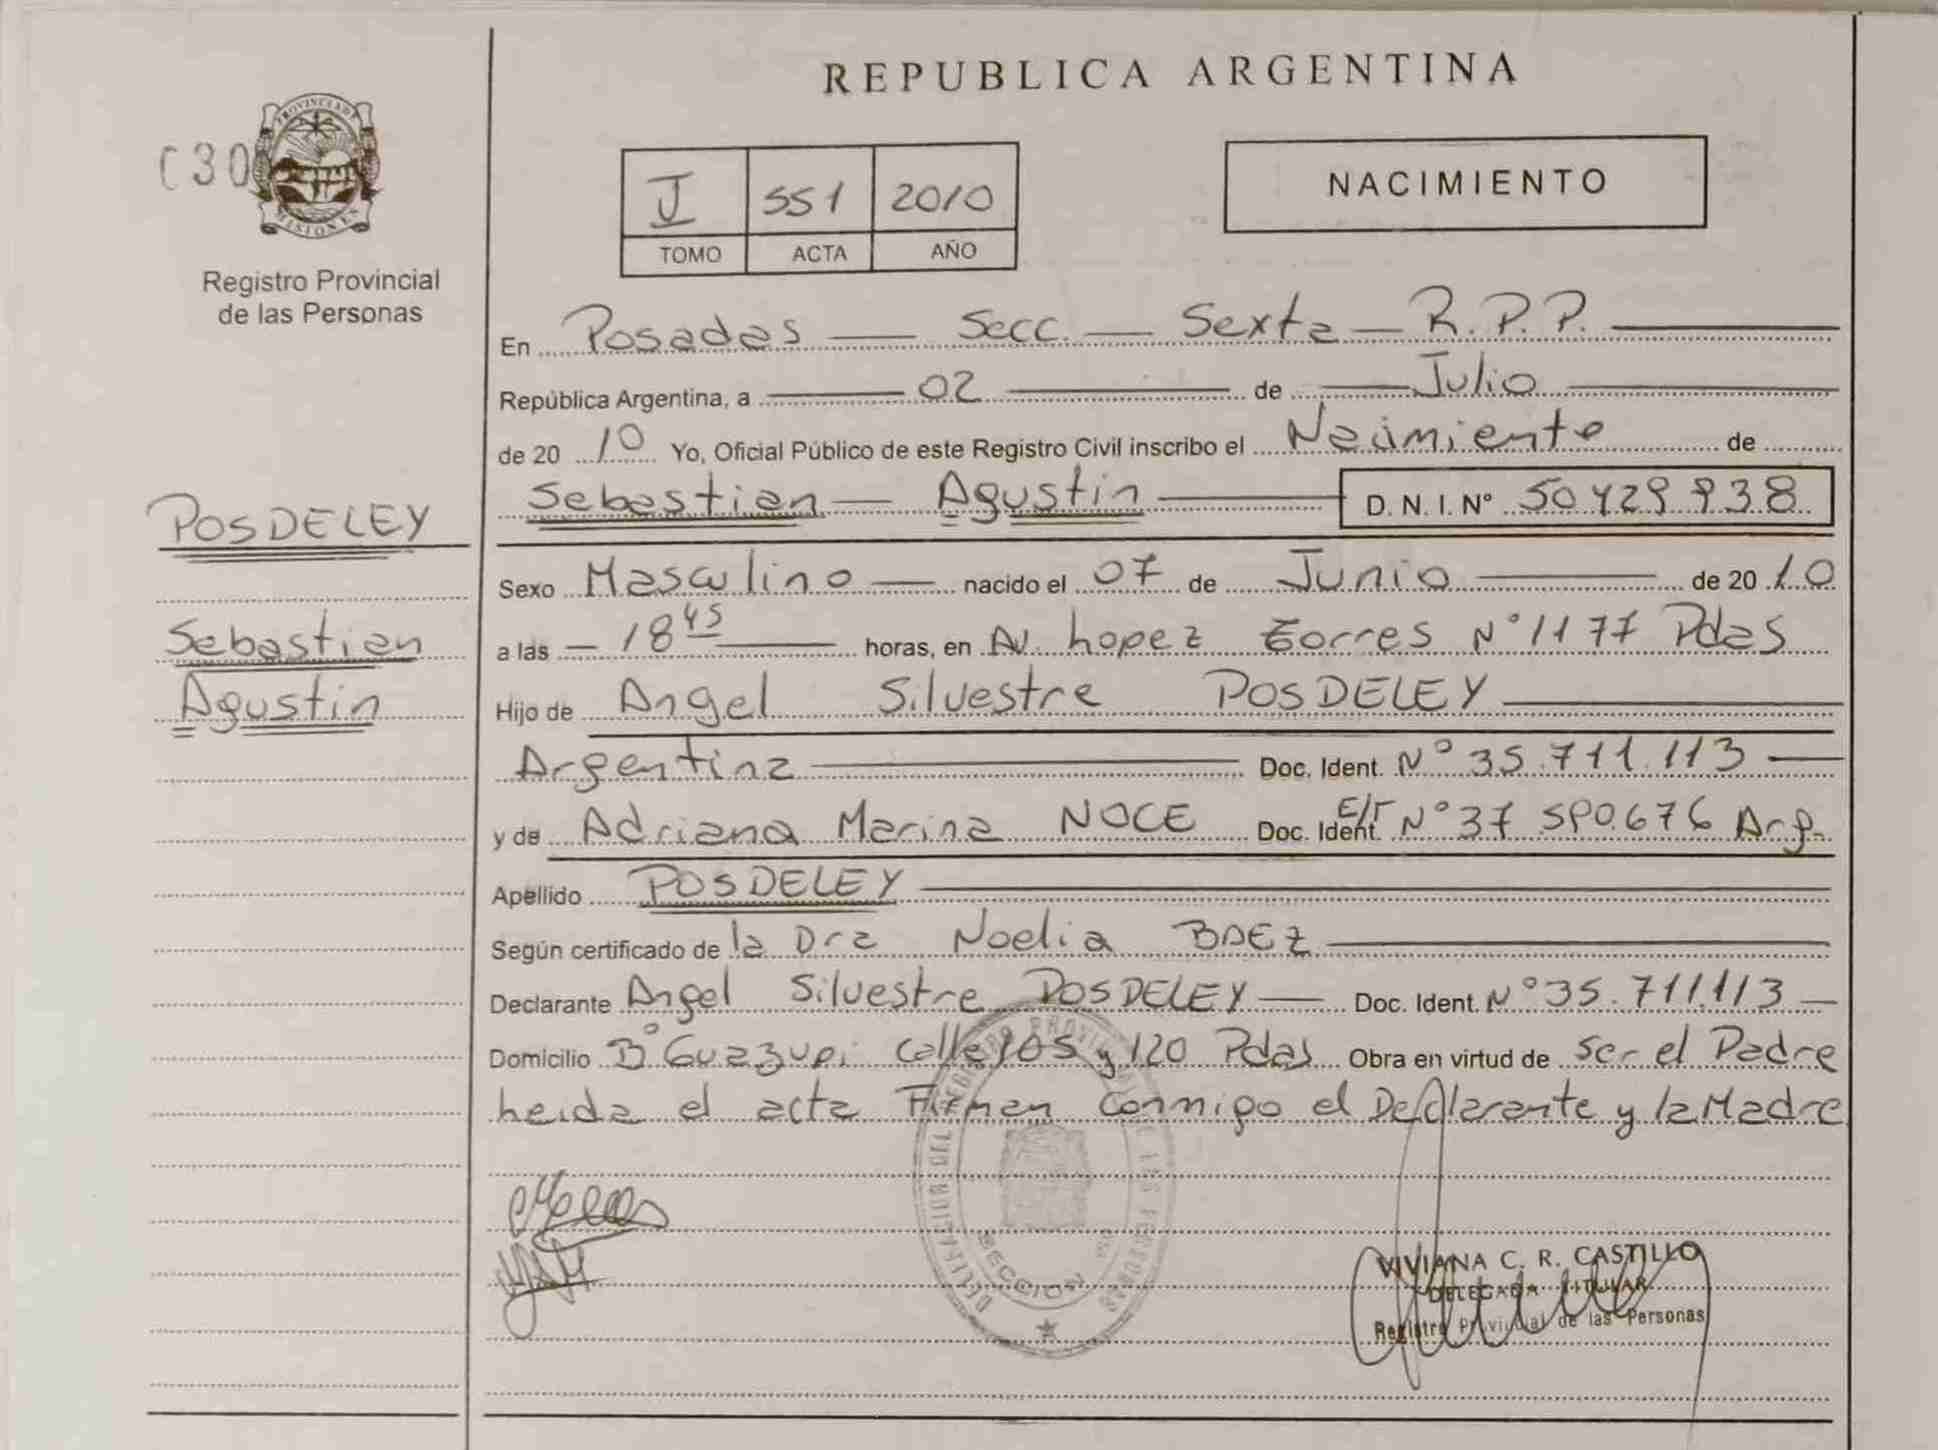 REPUBLICA ARGENTINA
C30
PROVINCIA DE MISIONES
Registro Provincial
de las Personas
I 551 2010
TOMO ACTA AÑO
NACIMIENTO
En Posadas — Secc. — Sexta — R.P.P.
República Argentina, a 02 de Julio
de 20 10 Yo, Oficial Público de este Registro Civil inscribo el Nacimiento de
Sebastian — Agustin D. N. I. Nº 50429938
POSDELEY
Sebastian
Agustin
Sexo Masculino — nacido el 07 de Junio de 20 10
a las — 18 45 horas, en Av. Lopez Torres Nº 1177 Pdas
Hijo de Angel Silvestre POSDELEY
Argentina Doc. Ident. Nº 35.711.113 —
y de Adriana Marina NOCE Doc. Ident. E/T Nº 37 590.676 Arg.
Apellido POSDELEY
Según certificado de la Dra Noelia BAEZ
Declarante Angel Silvestre POSDELEY — Doc. Ident. Nº 35.711.113 —
Domicilio Bº Guazupi calle 105 y 120 Pdas Obra en virtud de ser el Padre
heida el acta Firman Conmigo el Declarante y la Madre
DELEGACION DEL REGISTRO PROVINCIAL DE LAS PERSONAS
SECCION
VIVIANA C. R. CASTILLO
DELEGADA TITULAR
Registro Provincial de las Personas